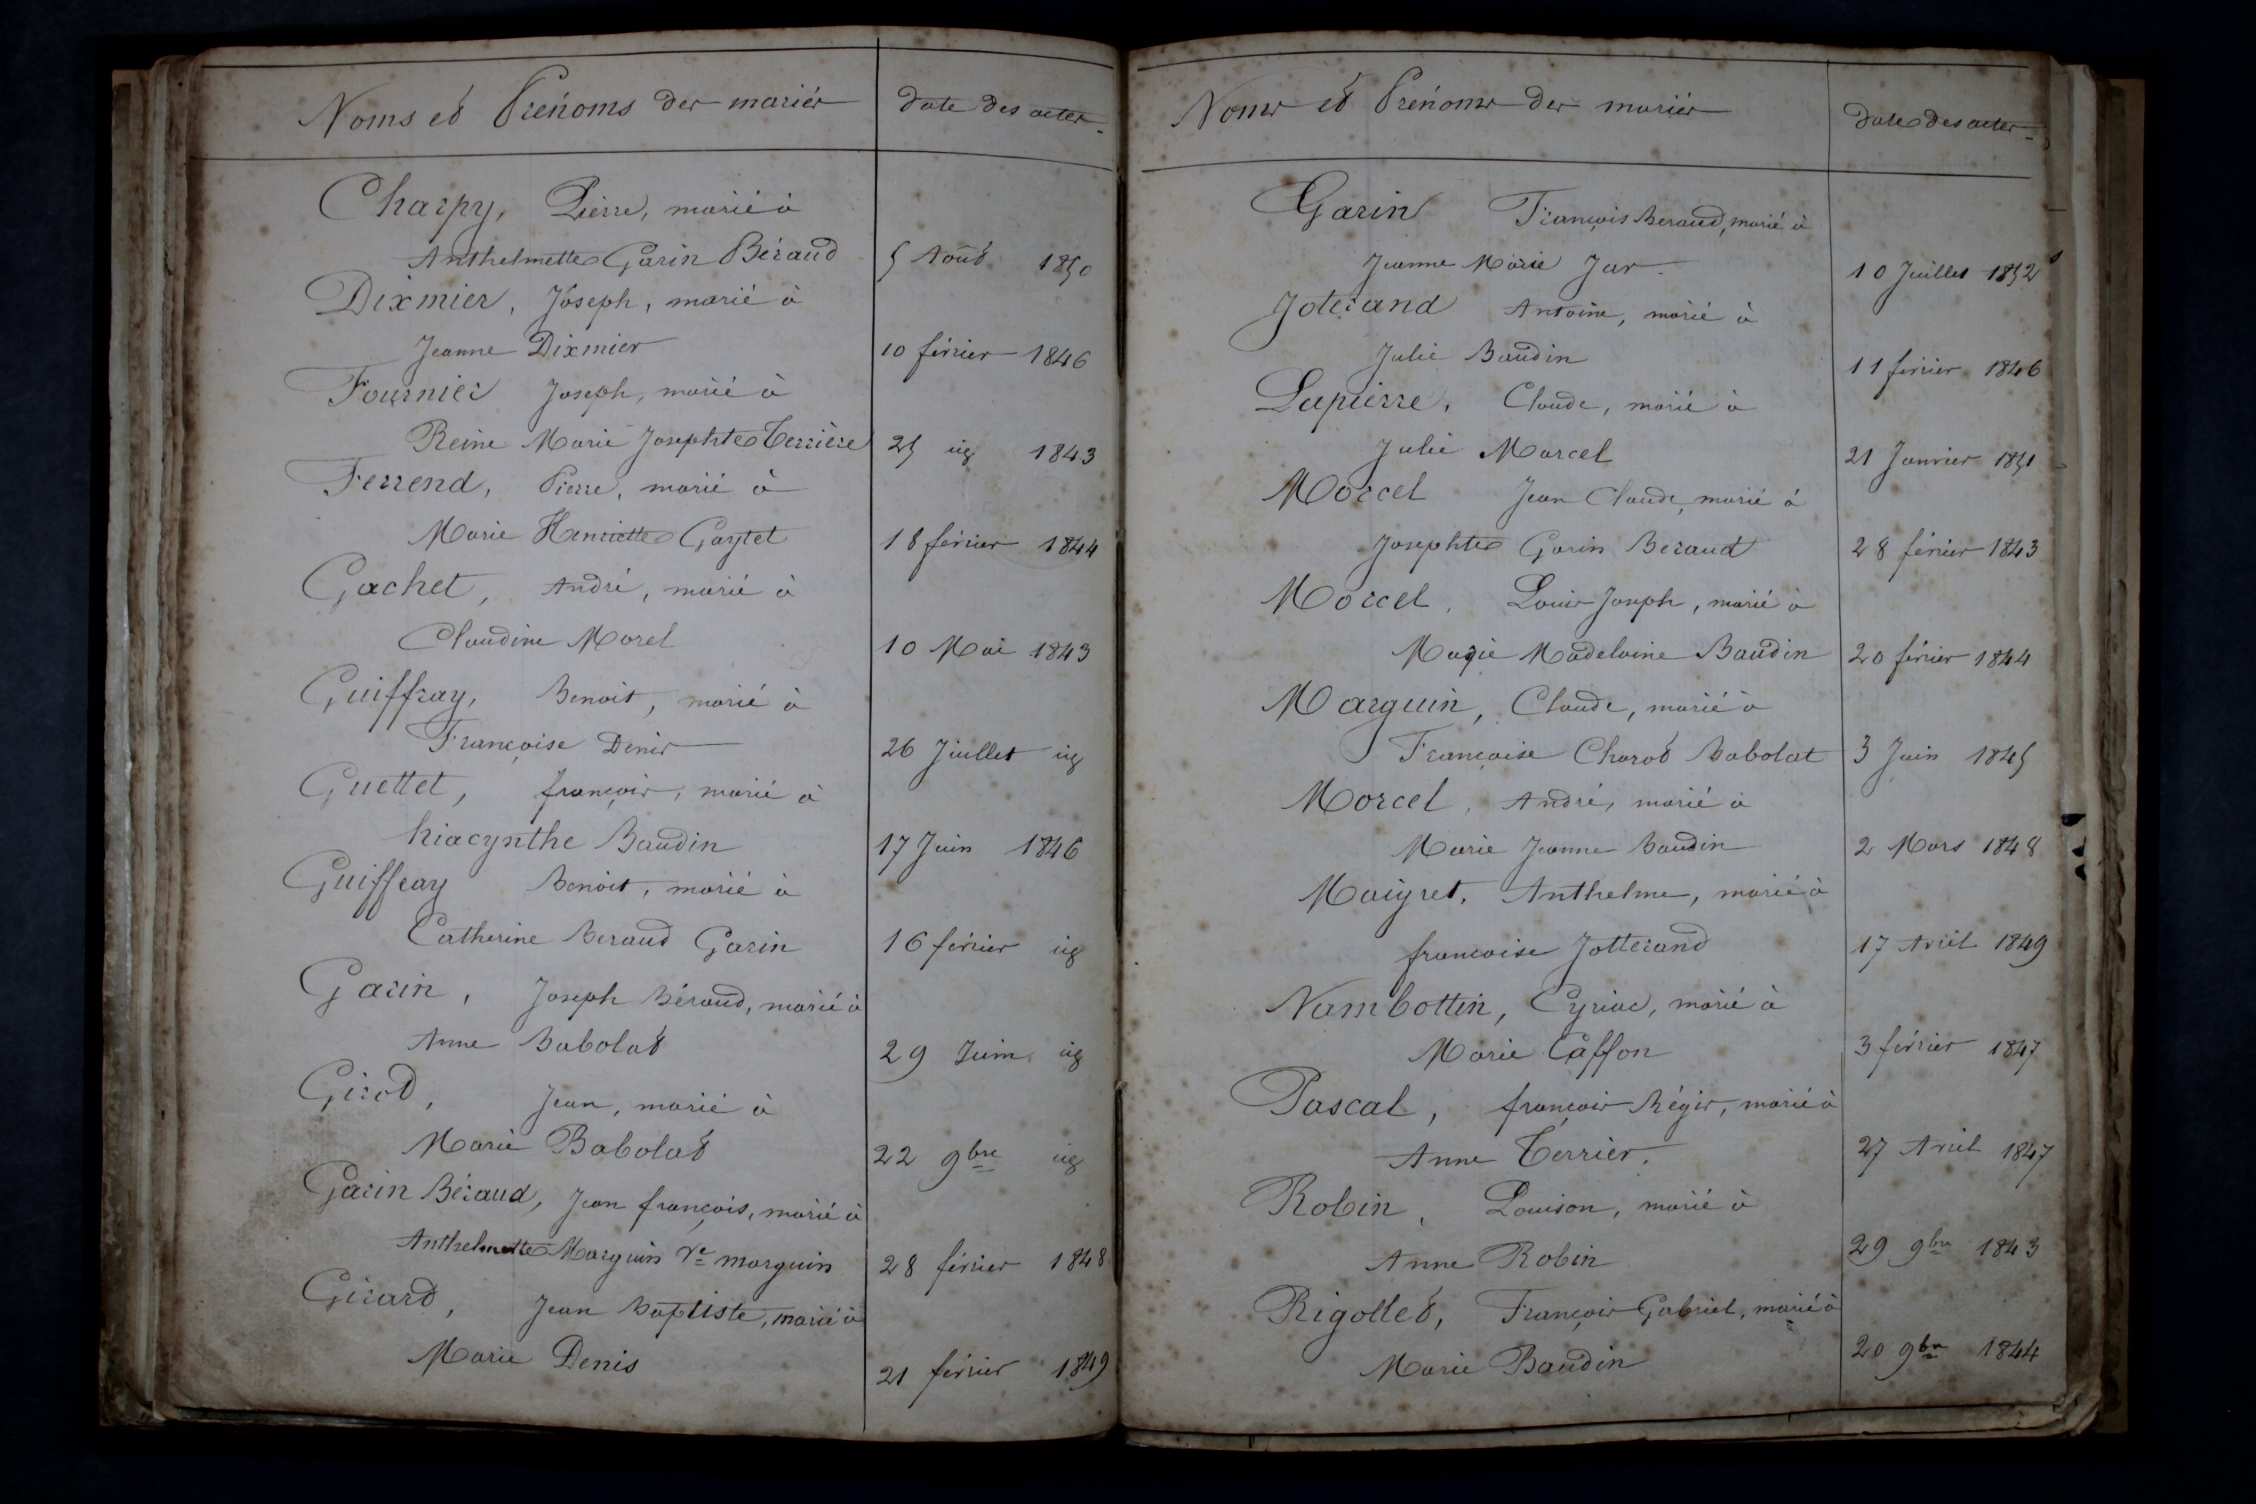 Noms et Prénoms des mariés
date des actes
Charpy, Pierre, marié à
Anthelmette Garin Béraud 5 Août 1850
Dixmier, Joseph, marié à
Jeanne Dixmier 10 février 1846
Fournier Joseph, marié à
Reine Marie Josephte Terrière 25 id 1843
Ferrend, Pierre, marié à
Marie Henriette Gaytet 18 février 1844
Gachet, André, marié à
Claudine Morel 10 Mai 1843
Guiffray, Benoit, marié à
Françoise Denis 26 Juillet id
Guettet, françois, marié à
hiacynthe Baudin 17 Juin 1846
Guiffray Benoit, marié à
Catherine Beraud Garin 16 février id
Garin, Joseph Béraud, marié à
Anne Babolat 29 Juin id
Girod, Jean, marié à
Marie Babolat 22 9bre id
Garin Béraud, Jean françois, marié à
Anthelmette Marguin Ve marguin 28 février 1848
Girard, Jean Baptiste, marié à
Marie Denis 21 février 1849
Noms et Prénoms des mariés
date des actes
Garin François Beraud, marié à
Jeanne Marie Jar 10 Juillet 1852
Joterand Antoine, marié à
Julie Baudin 11 février 1846
Lapierre, Claude, marié à
Julie Marcel 21 Janvier 1851
Morcel Jean Claude, marié à
Josephte Garin Beraud 28 février 1843
Morcel, Louis Joseph, marié à
Marie Madelaine Baudin 20 février 1844
Marguin, Claude, marié à
Françoise Charot Babolat 3 Juin 1845
Morcel, André, marié à
Marie Jeanne Baudin 2 Mars 1848
Maigret, Anthelme, marié à
françoise Jotterand 17 Avril 1849
Nambottin, Cyriac, marié à
Marie Caffon 3 février 1847
Pascal, françois Régis, marié à
Anne Terrier. 27 Avril 1847
Robin, Louison, marié à
Anne Robin 29 9bre 1843
Rigollet, François Gabriel, marié à
Marie Baudin 20 9bre 1844